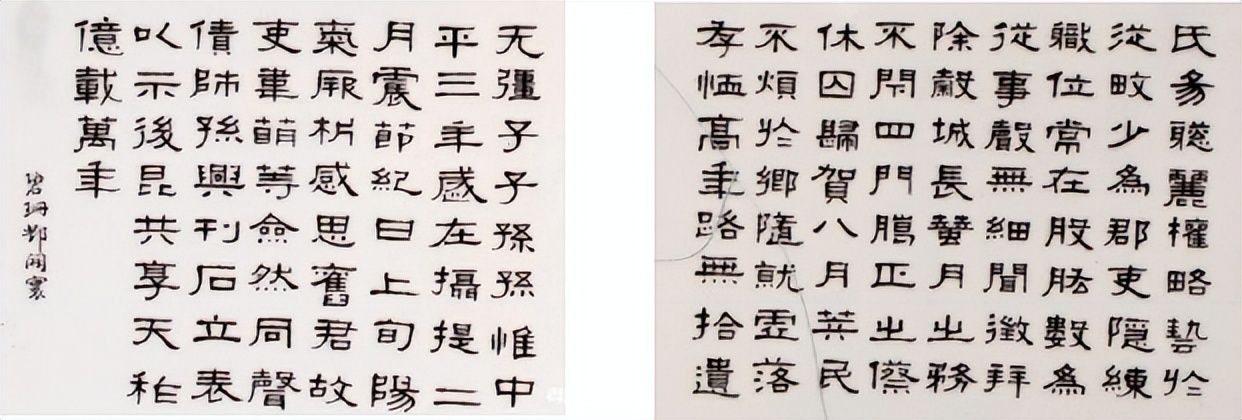 氏易聰麗權略藝於
從畋少為郡吏隱練
職位常在股肱數為
從事聲無細聞徵拜
除穀城長蠶月之務
不閉四門臘正之僚
休囚歸賀八月筭民
不煩於鄉隨就虛落
存恤高年路無拾遺
无疆子子孫孫惟中
平三年歲在攝提二
月震節紀日上旬陽
氣厥析感思舊君故
吏韋萌等僉然同聲
賃師孫興刊石立表
以示後昆共享天祚
億載萬年
碧珊